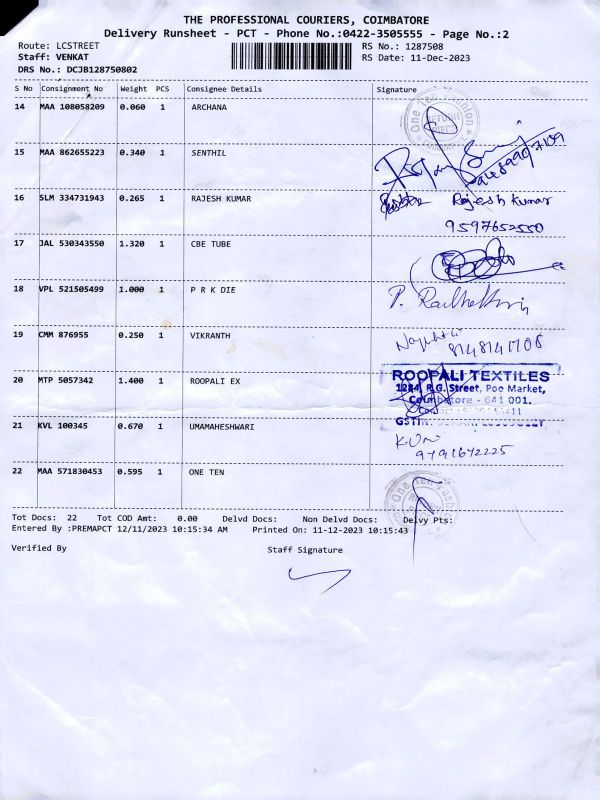 THE PROFESSIONAL COURIERS, COIMBATORE
Delivery Runsheet - PCT - Phone No.:0422-3505555 - Page No.:2
Route: LCSTREET RS No.: 1287508
Staff: VENKAT RS Date: 11-Dec-2023
DRS No.: DCJB128750802
S No Consignment No Weight PCS Consignee Details Signature
14 MAA 108058209 0.060 1 ARCHANA
One Ten Fashion
15 MAA 862655223 0.340 1 SENTHIL
16 SLM 334731943 0.265 1 RAJESH KUMAR Rajesh Kumar
9597652550
17 JAL 530343550 1.320 1 CBE TUBE
18 VPL 521505499 1.000 1 P R K DIE
19 CMM 876955 0.250 1 VIKRANTH
8148141706
20 MTP 5057342 1.400 1 ROOPALI EX ROOPALI TEXTILES
R.G. Street, Poo Market,
Coimbatore - 641 001.
21 KVL 100345 0.670 1 UMAMAHESHWARI
9791672225
22 MAA 571830453 0.595 1 ONE TEN
One Ten Fashion
Tot Docs: 22 Tot COD Amt: 0.00 Delvd Docs: Non Delvd Docs: Delvy Pts:
Entered By :PREMAPCT 12/11/2023 10:15:34 AM Printed On: 11-12-2023 10:15:43
Verified By Staff Signature